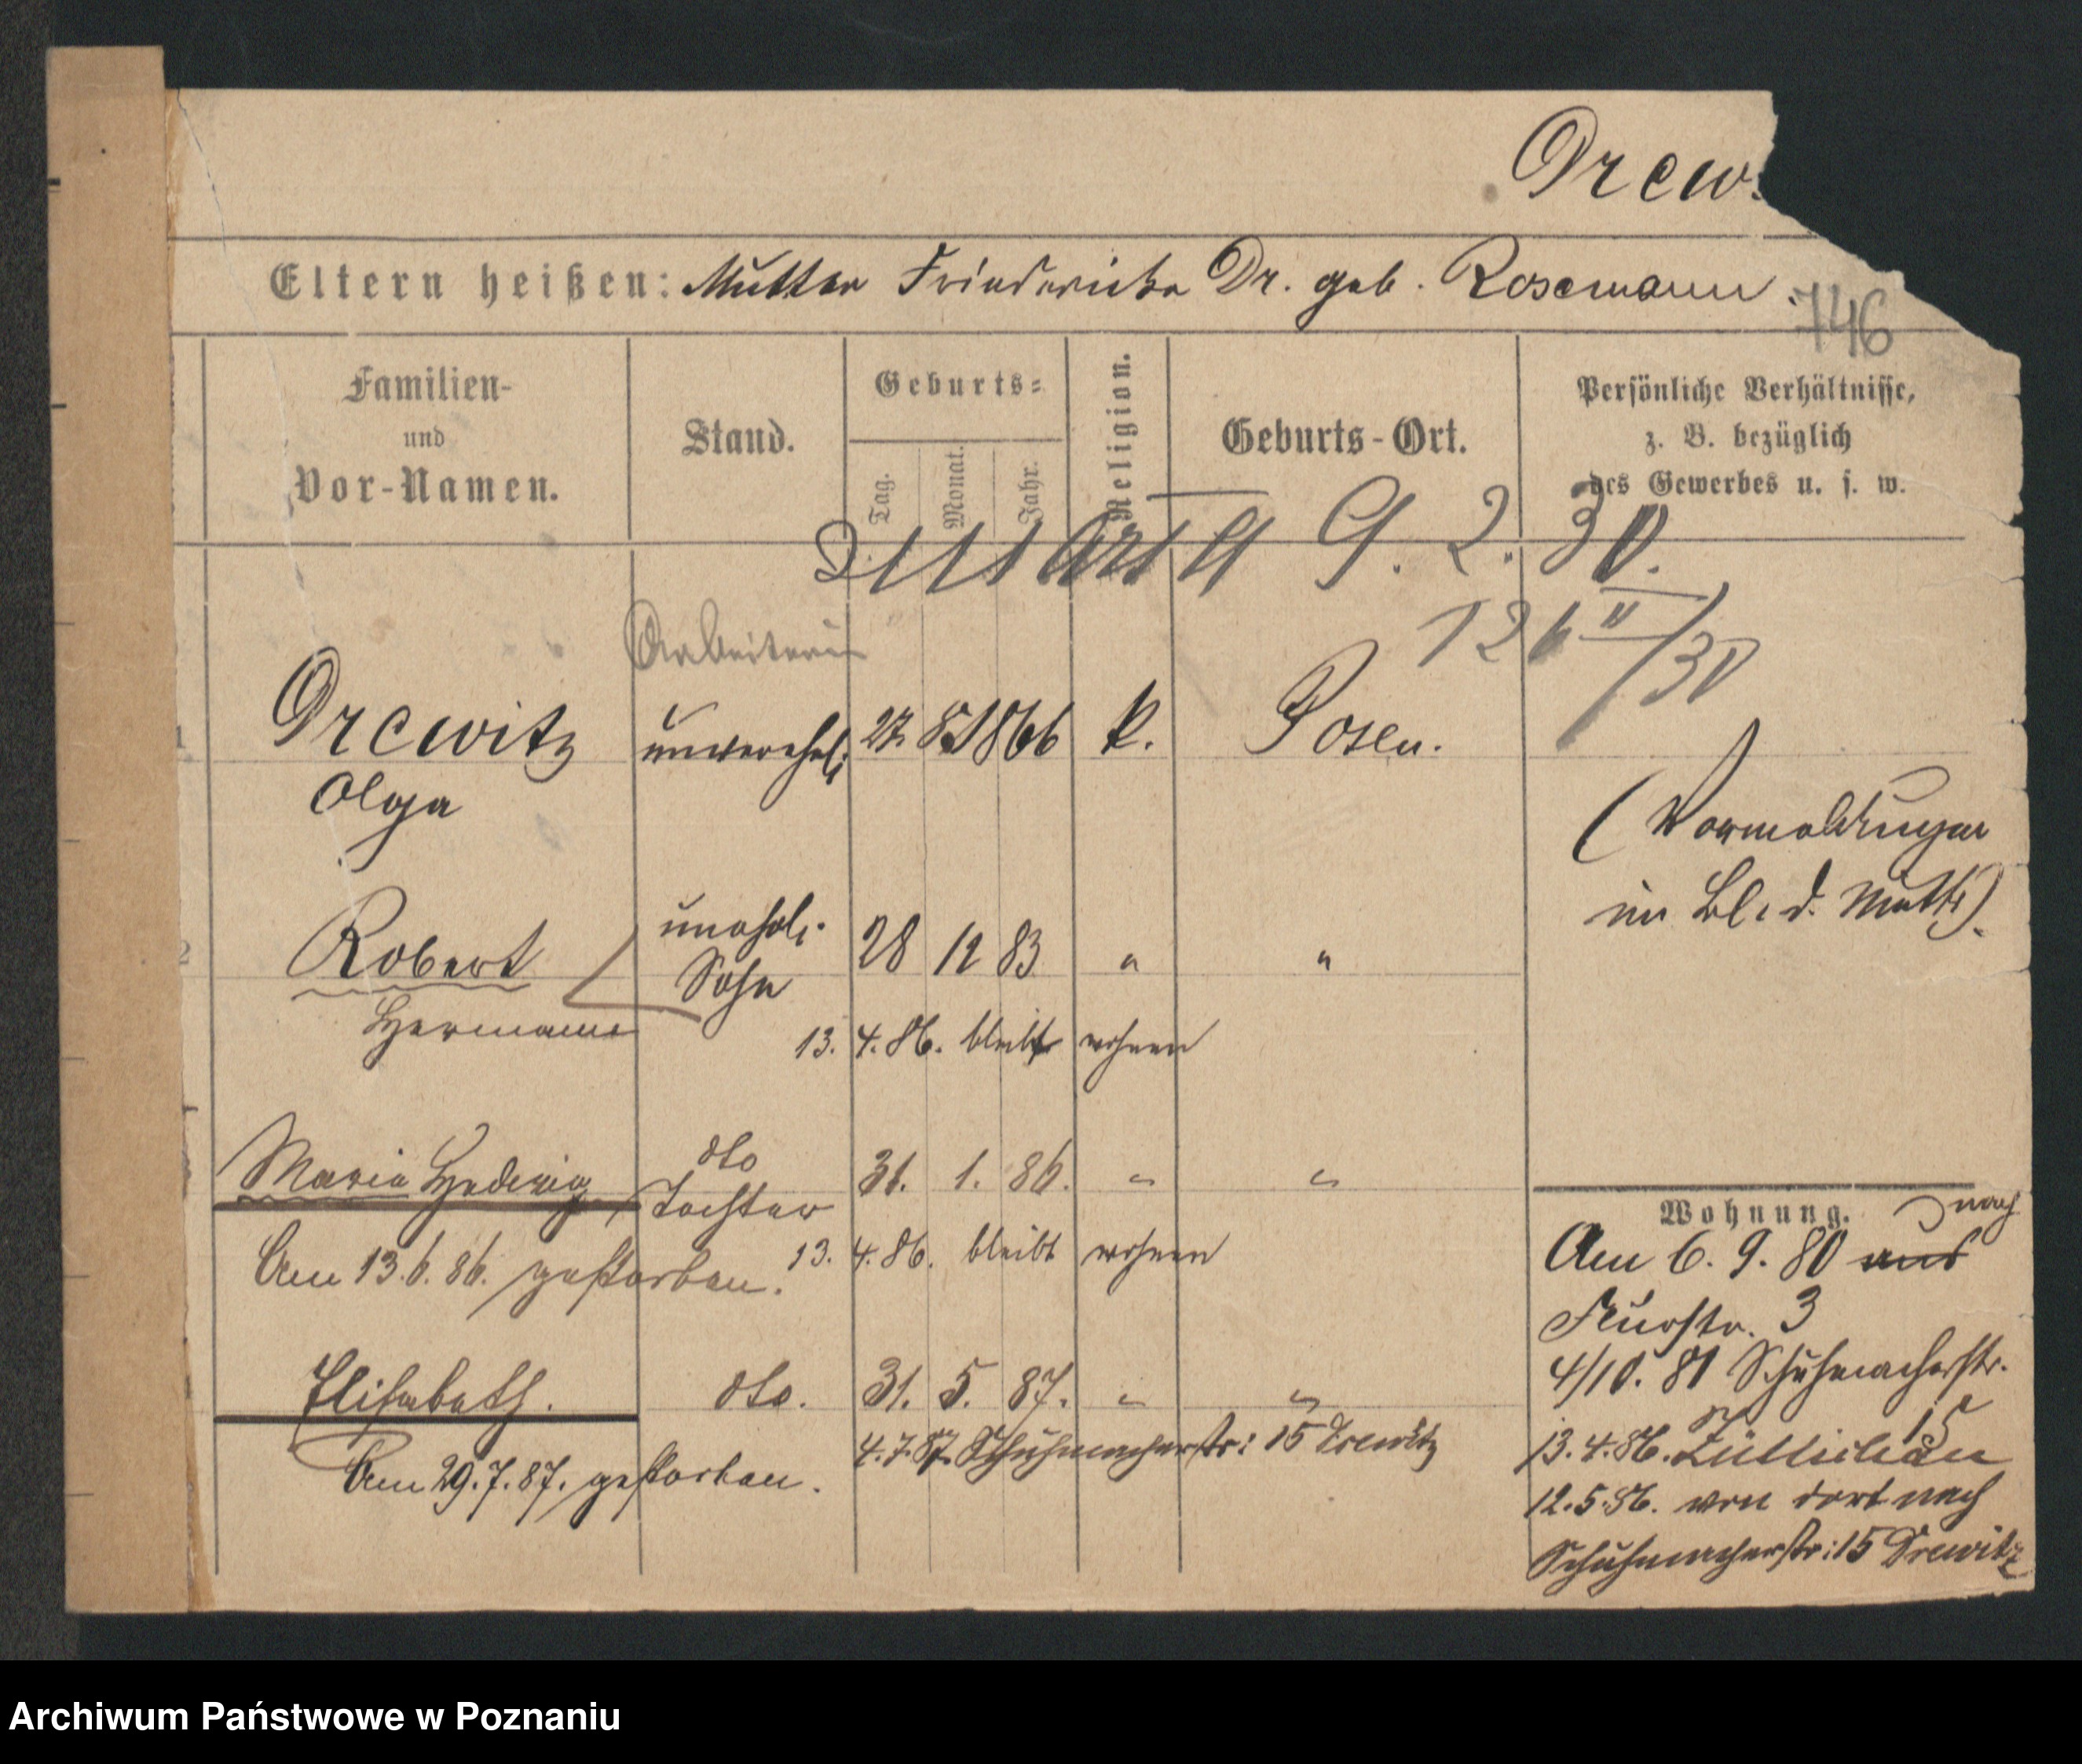 Drew
Eltern heißen: Mutter Friedericke Dr. geb. Rosemann.
746
Familien-
und
Vor-Namen.
Stand.
Geburts-
Tag.
Monat.
Jahr.
Religion.
Geburts-Ort.
Persönliche Verhältnisse,
z. B. bezüglich
des Gewerbes u. s. w.
9. 2. 30.
126 II/30
Arbeiterin
1 Drewitz unverehel. 27. 8. 1866 k. Posen.
Olga
(Vormerkungen
im Bl. d. Mutt.)
2 Robert unehel. Sohn 28 12 83 " "
Hermann
13. 4. 86. bleibt wohnen
Maria Hedwig dto Tochter 31. 1. 86. " "
Am 13. 6. 86. gestorben. 13. 4. 86. bleibt wohnen
Elisabeth. dto. 31. 5. 87. " "
4. 7. 87. Schuhmacherstr: 15 Drewitz
Am 29. 7. 87. gestorben.
Wohnung.
nach
Am 6. 9. 80 aus
Flurstr. 3
4/10. 81 Schuhmacherstr.
15
13. 4. 86. Züllichau
12. 5. 86. von dort nach
Schuhmacherstr: 15 Drewitz
Archiwum Państwowe w Poznaniu